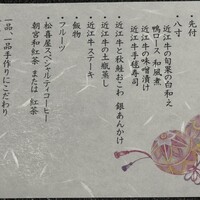 ・先付
近江牛の旬菜の白和え
・八寸
鴨ロース 和風煮
近江牛の味噌漬け
近江牛手毬寿司
・近江牛と秋鮭おこわ 銀あんかけ
・近江牛の土瓶蒸し
・近江牛ステーキ
・飯物
・フルーツ
・松喜屋スペシャルティコーヒー
朝宮和紅茶 または 紅茶
一品、一品手作りにこだわり